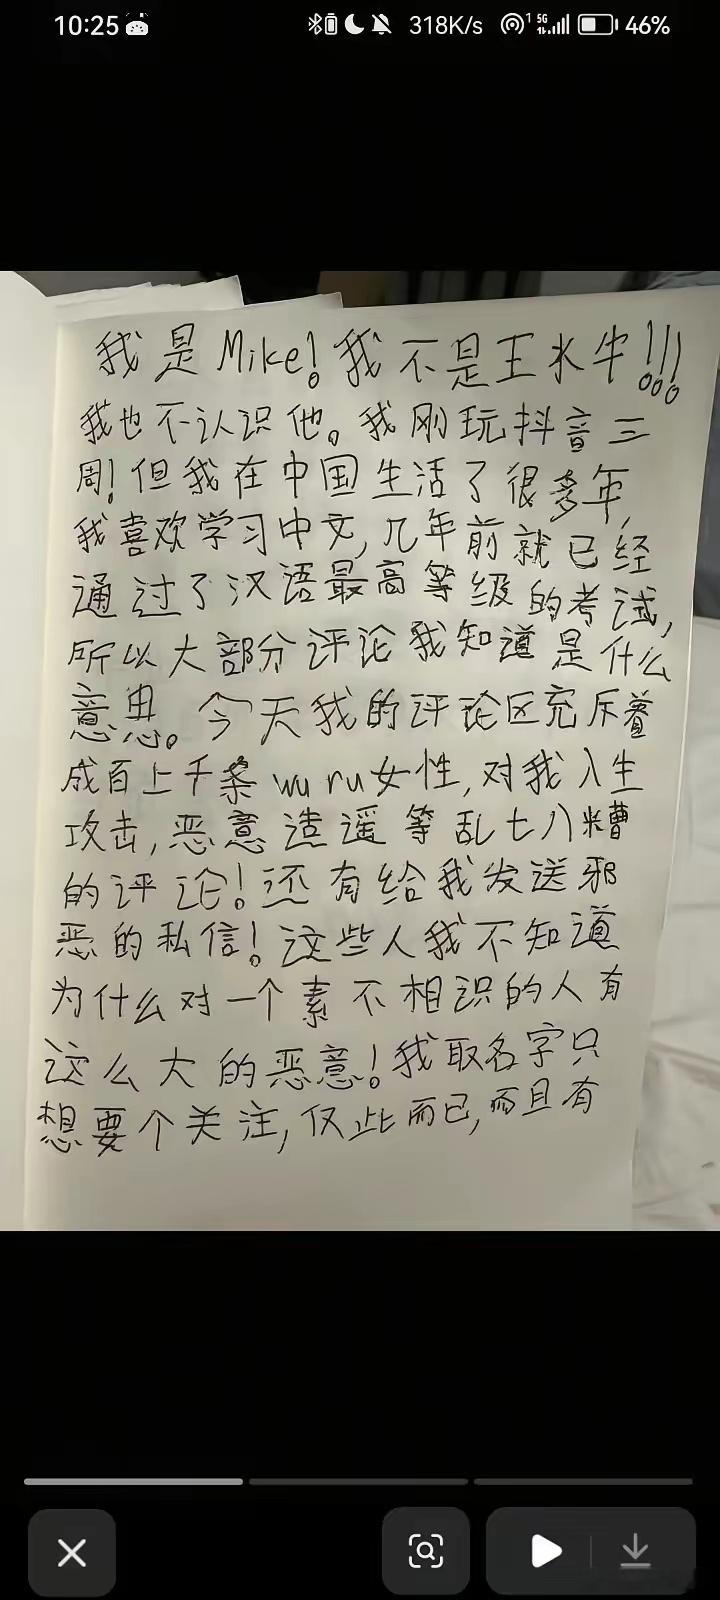 10:25 318K/s 1 5G 46%
我是Mike!我不是王水牛!!!
我也不认识他。我刚玩抖音三
周!但我在中国生活了很多年,
我喜欢学习中文,几年前就已经
通过了汉语最高等级的考试,
所以大部分评论我知道是什么
意思。今天我的评论区充斥着
成百上千条wu ru女性,对我人生
攻击,恶意造遥等乱七八糟
的评论!还有给我发送邪
恶的私信!这些人我不知道
为什么对一个素不相识的人有
这么大的恶意!我取名字只
想要个关注,仅此而已,而且有